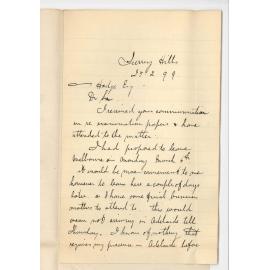 Surrey Hills
25 2 99
Hodge Esq
Dr Sir
I received your communication
in re examination papers & have
attended to the matter.
I had proposed to leave
Melbourne on Monday March 6th
It would be more convenient to me
however to leave here a couple of days
later as I have some private business
matters to attend to this would
mean not arriving in Adelaide till
Thursday. I know of nothing that
requires my presence in Adelaide before